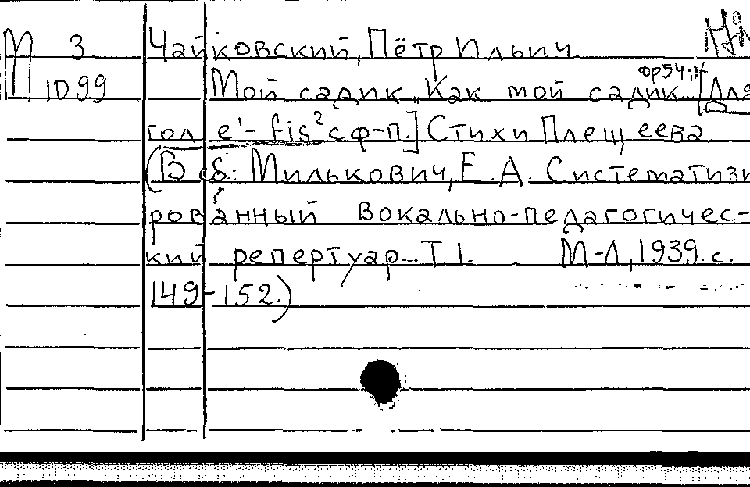 М 3 Чайковский, Пётр Ильич
1099 Мой садик „Как мой садик [Для
гол e'-fis² с ф-п.] Стихи Плещеева
(В сб: Милькович, Е.А. Системати­зи
рованный вокально-педагогичес-
кий репертуар. Т 1. М-Л, 1939. с.
149-152.)